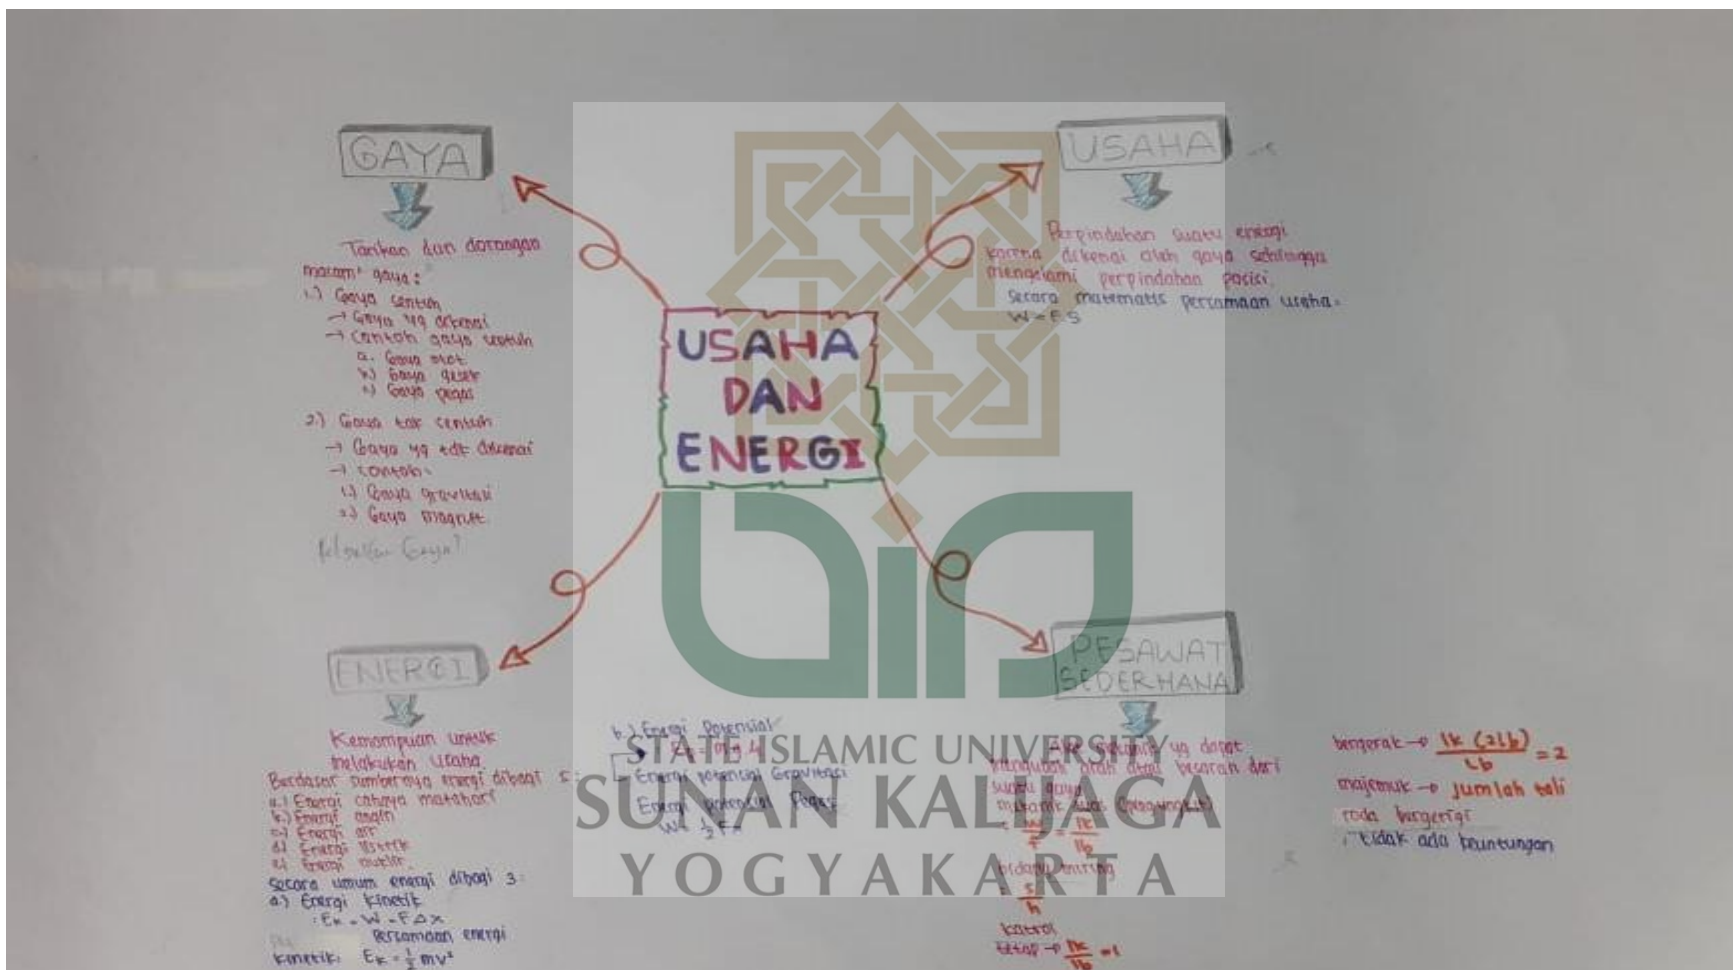 USAHA
DAN
ENERGI
GAYA
Tarikan dan dorongan
macam² gaya:
1.) Gaya sentuh
→ Gaya yg dikenai
→ contoh gaya sentuh
a. Gaya otot
b.) Gaya gesek
c.) Gaya pegas
2.) Gaya tak sentuh
→ Gaya yg tdk dikenai
→ contoh:
1.) Gaya gravitasi
2.) Gaya magnet
Gaya?
USAHA
Perpindahan suatu energi
karena dikenai oleh gaya sehingga
mengalami perpindahan posisi.
Secara matematis persamaan usaha:
W = F.S
ENERGI
Kemampuan untuk
melakukan usaha
Berdasar sumbernya energi dibagi 5:
a.) Energi cahaya matahari
b.) Energi angin
c.) Energi air
d.) Energi listrik
e.) Energi nuklir
Secara umum energi dibagi 3:
a.) Energi kinetik
: Ek = W = F Δx
Persamaan energi
kinetik: Ek = ½ mv²
b.) Energi Potensial
Energi potensial Gravitasi
Energi potensial Pegas
PESAWAT
SEDERHANA
yg dapat
mengubah arah atau besaran dari
suatu gaya
(pengungkit)
: w/F = lk/lb
bidang miring
: s/h
katrol
tetap → lk/lb = 1
bergerak → lk (2lb)/lb = 2
majemuk → jumlah tali
roda bergerigi
, tidak ada keuntungan
STATE ISLAMIC UNIVERSITY
SUNAN KALIJAGA
YOGYAKARTA